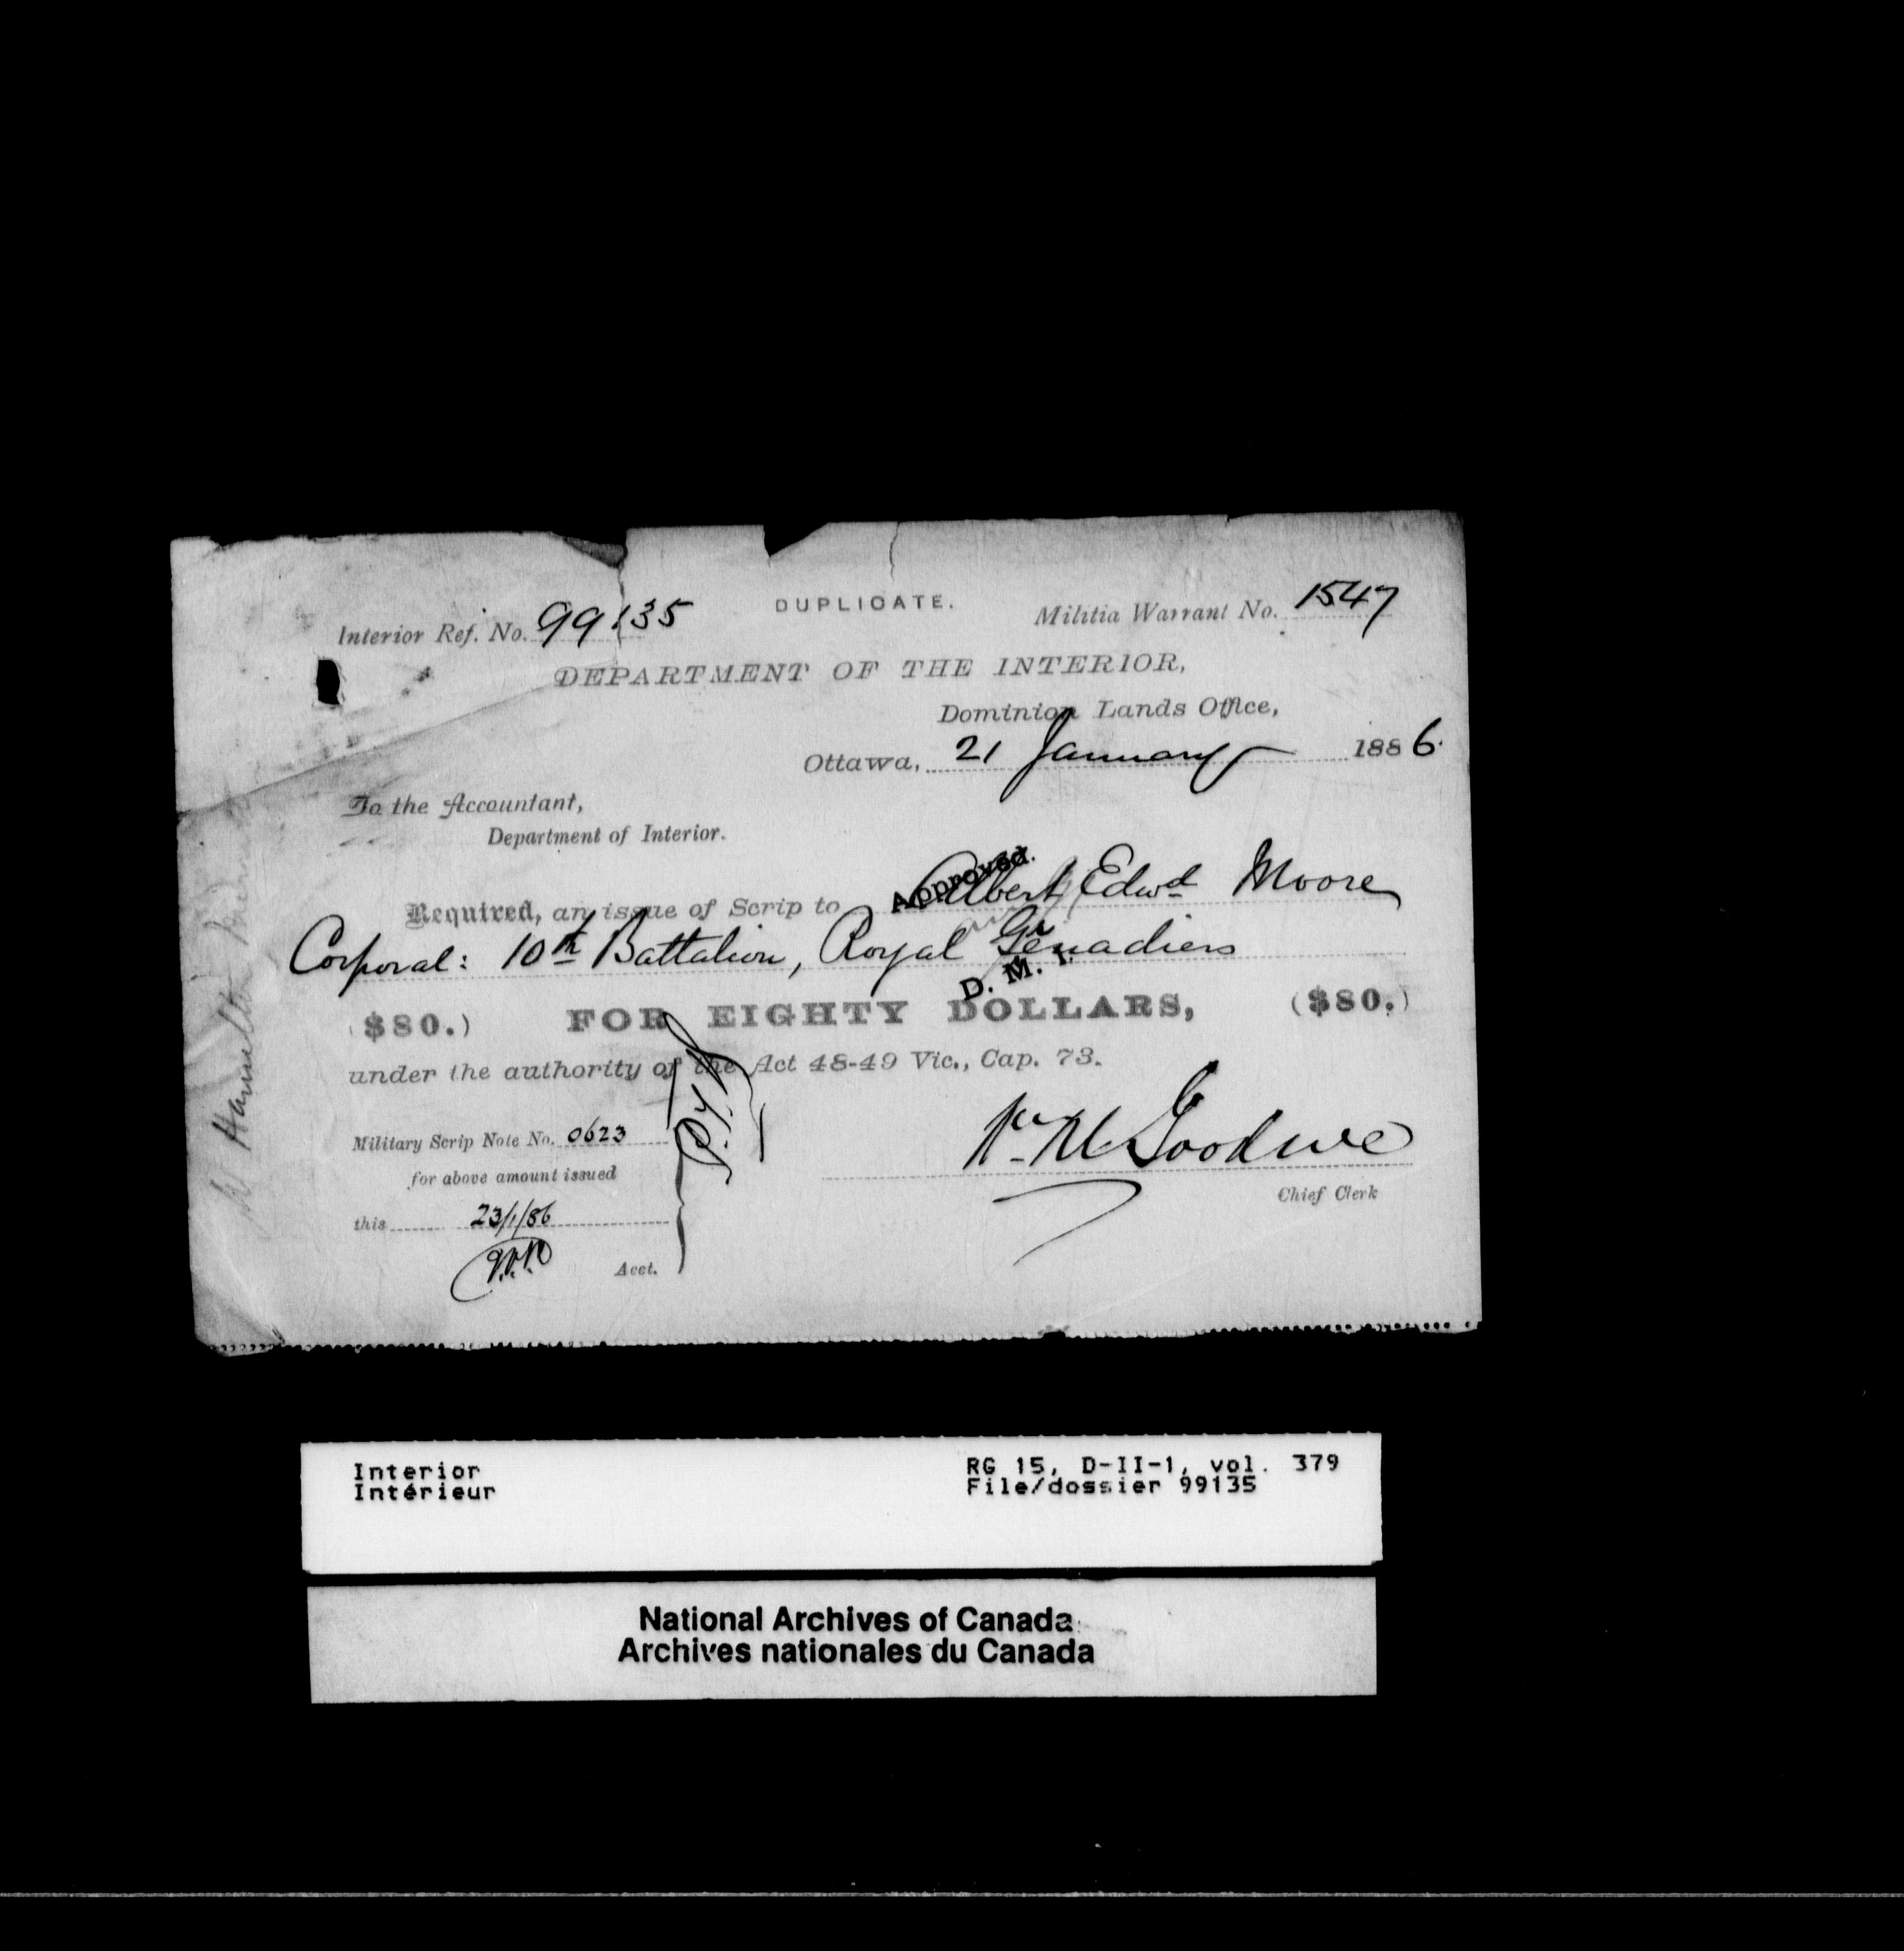 DUPLICATE.
Interior Ref. No. 99135
Militia Warrant No. 1547
DEPARTMENT OF THE INTERIOR,
Dominion Lands Office,
Ottawa, 21 January 1886.
To the Accountant,
Department of Interior.
Approved.
Required, an issue of Scrip to Albert Edwd Moore
Corporal: 10th Battalion, Royal Grenadiers
D. M. I.
($80.) FOR EIGHTY DOLLARS, ($80.)
under the authority of the Act 48-49 Vic., Cap. 73.
Military Scrip Note No. 0623
for above amount issued
this 23/1/86
Acct.
Chief Clerk
Hamilton
Interior
Intérieur
RG 15, D-II-1, vol. 379
File/dossier 99135
National Archives of Canada
Archives nationales du Canada